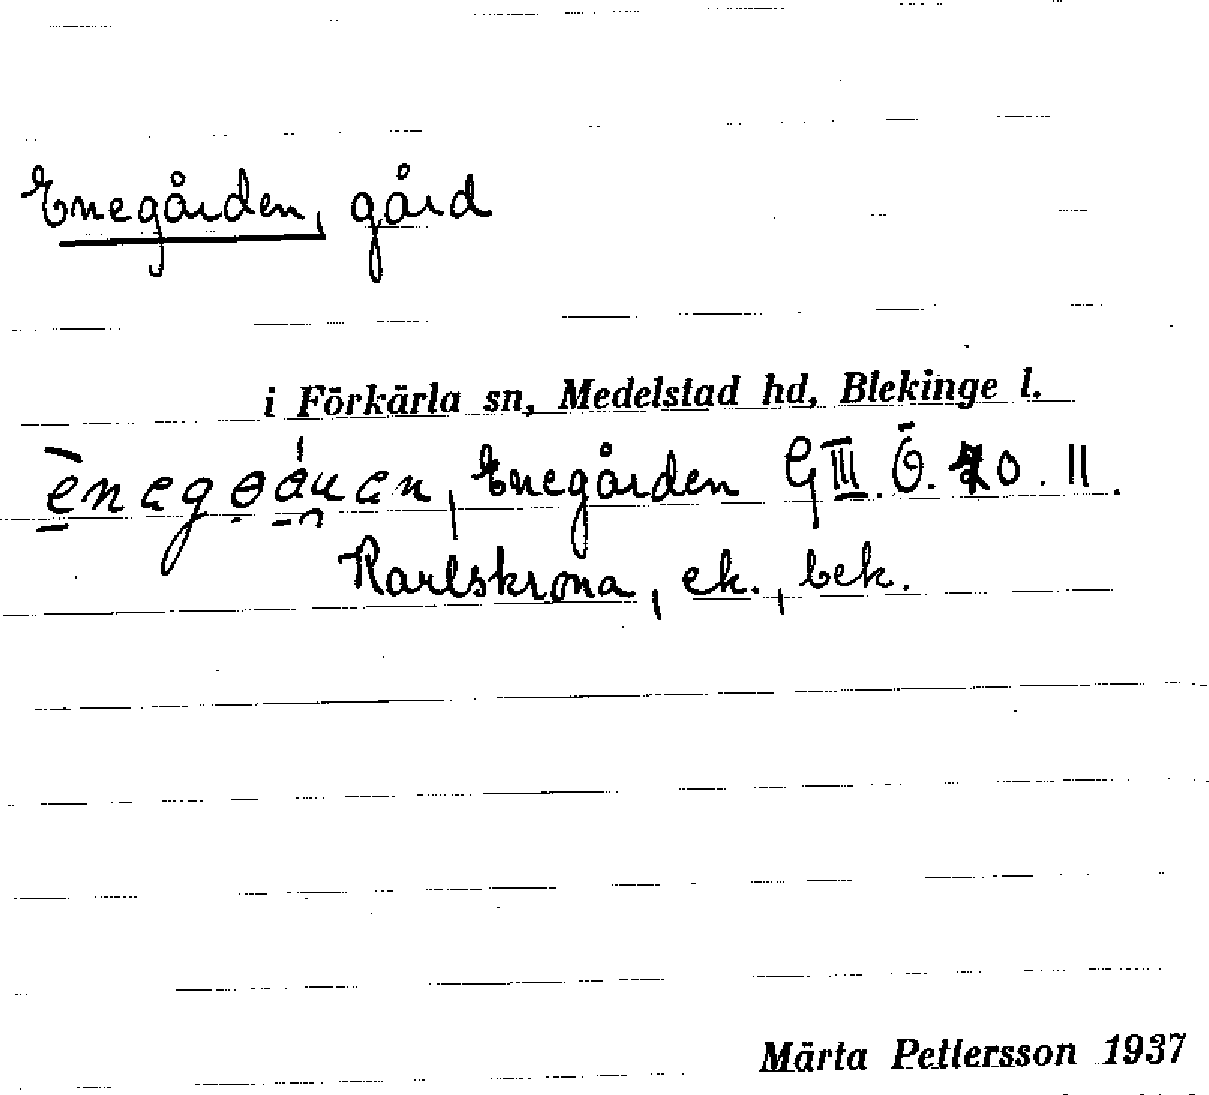 Enegården, gård
i Förkärla sn, Medelstad hd, Blekinge l.
Enegården G III. Ö. 20. 11
Karlskrona, ek., bek.
Märta Pettersson 1937